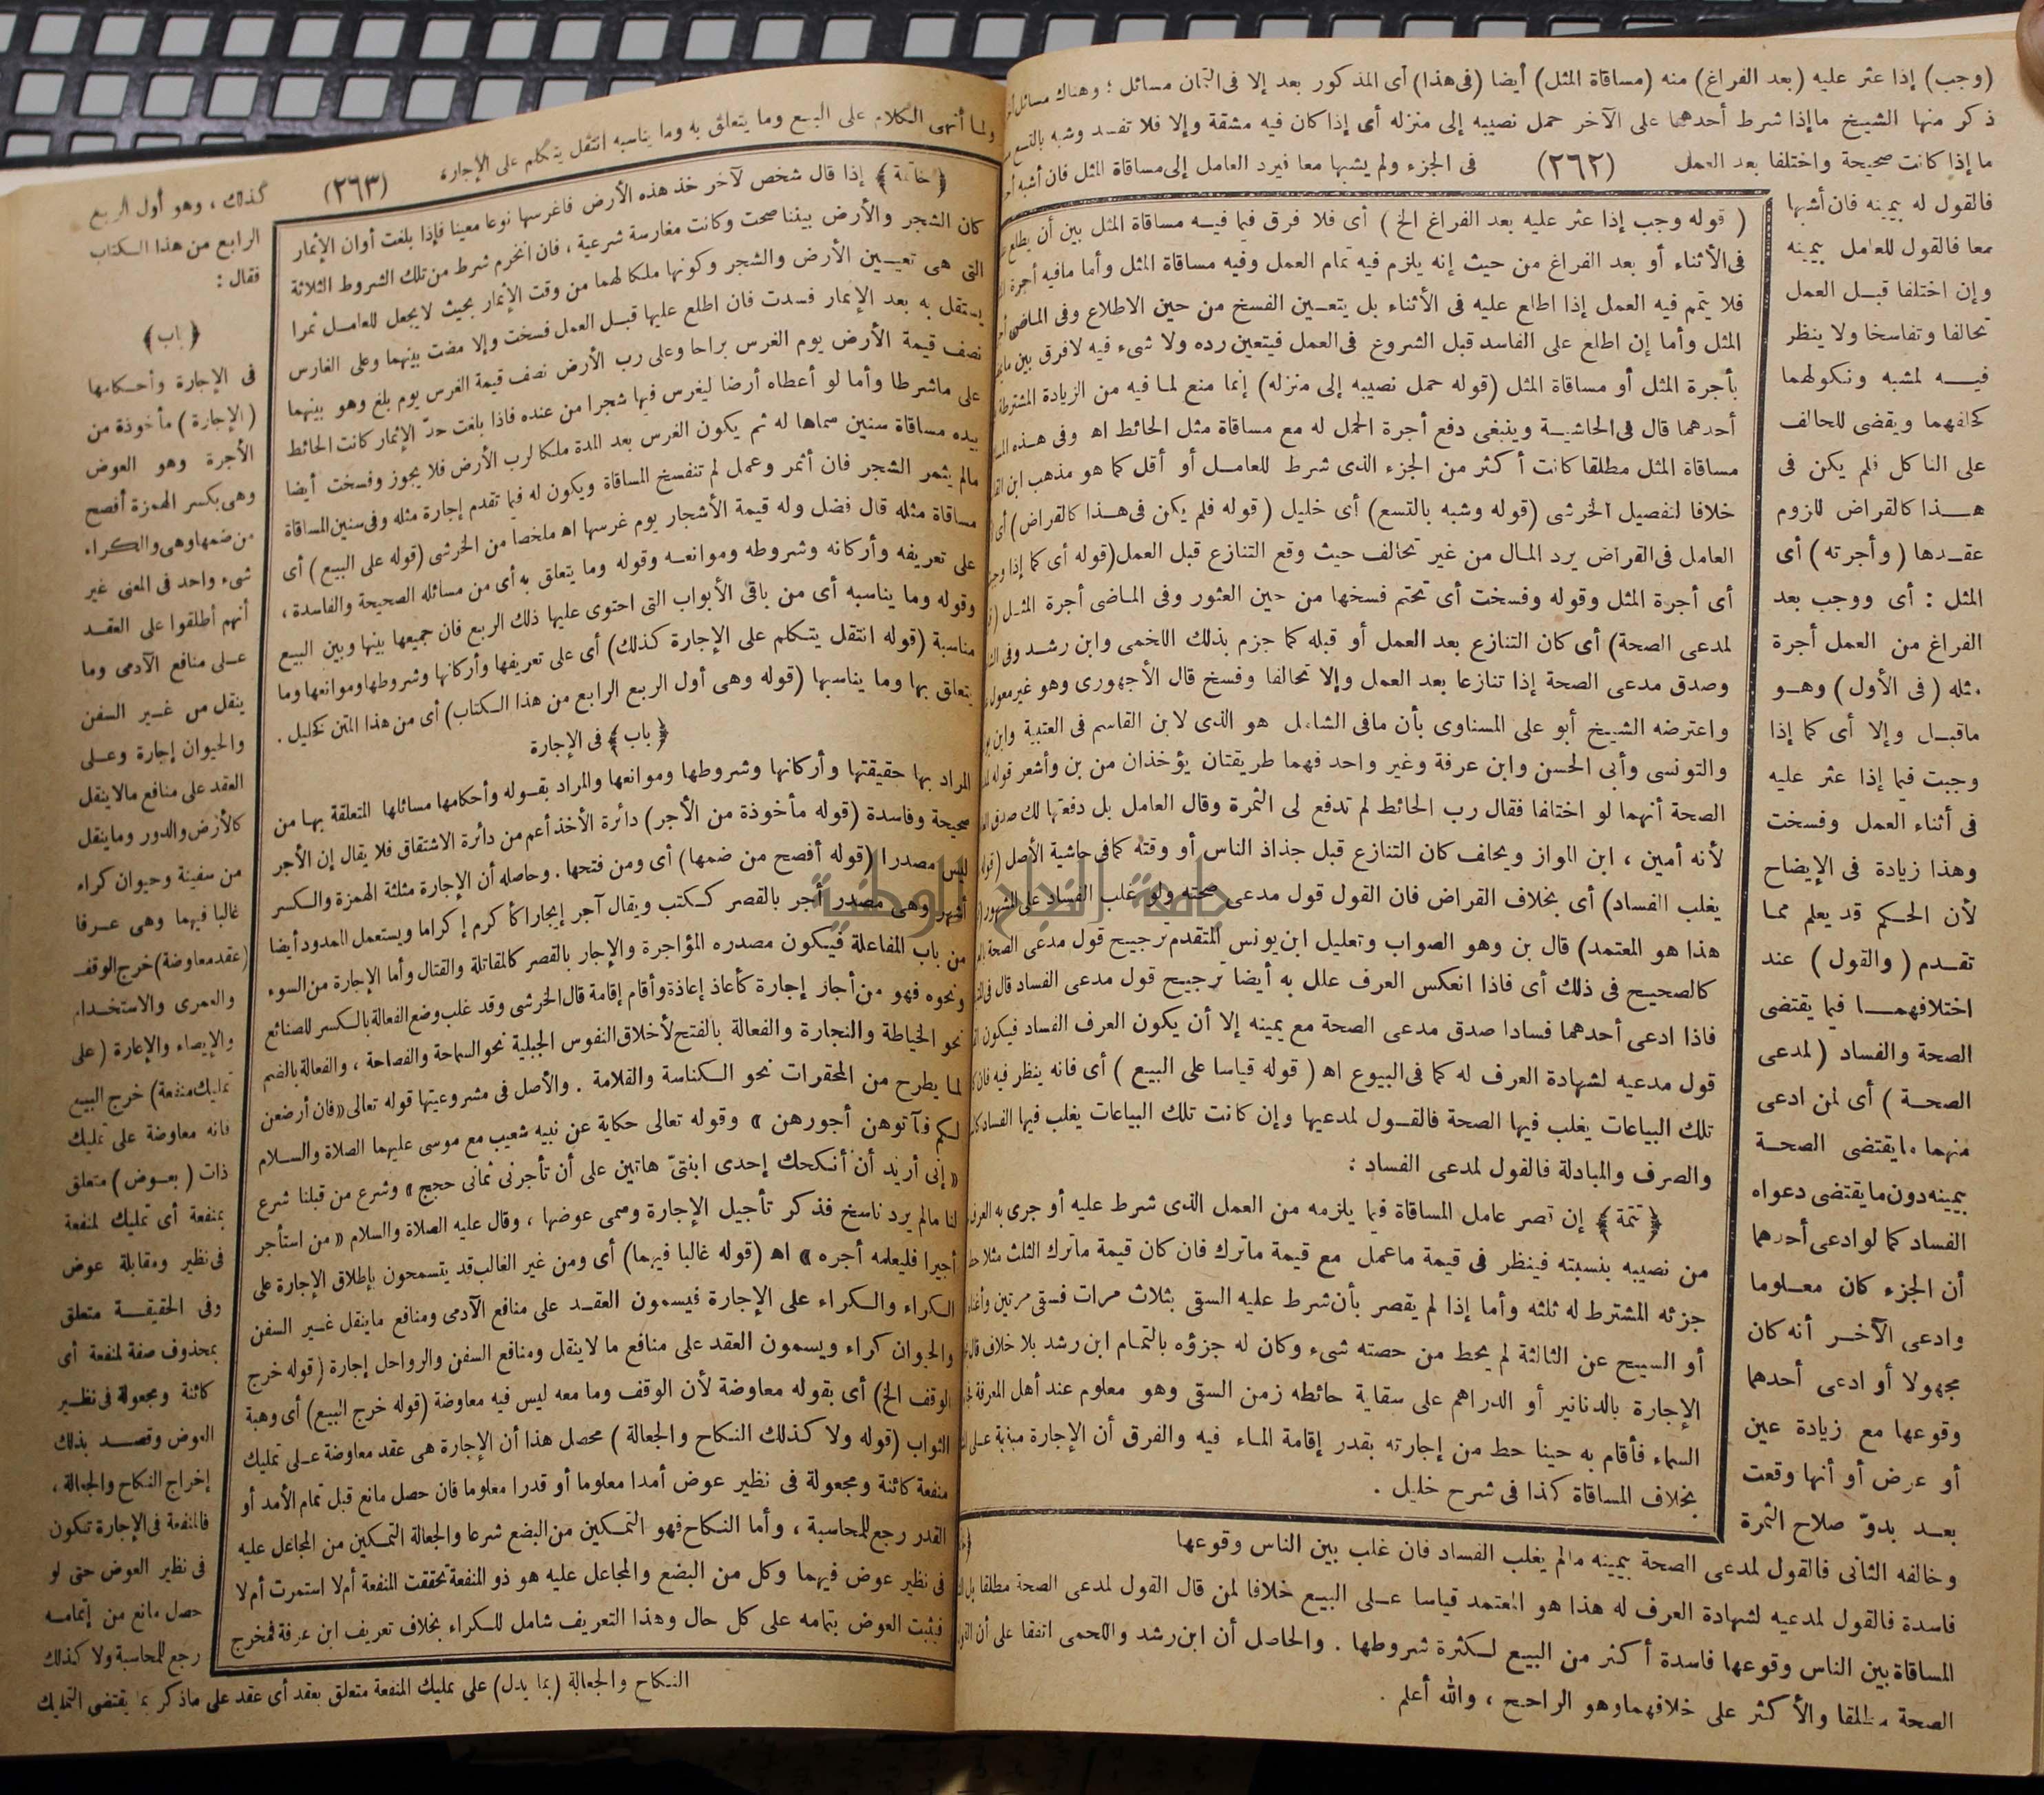 (وجب) إذا عثر عليه (بعد الفراغ) منه (مساقاة المثل) أيضا (فى هذا) أى المذكور بعد إلا فى الثمان مسائل ؛ وهناك مسائل
ذكر منها الشيخ ما إذا شرط أحدهما على الآخر حمل نصيبه إلى منزله أى إذا كان فيه مشقة وإلا فلا تفسد وشبه بالتسع
ما إذا كانت صحيحة واختلفا بعد العمل (٢٦٢) فى الجزء ولم يشبها معا فيرد العامل إلى مساقاة المثل فان أشبه
فالقول له بيمينه فان أشبها
معا فالقول للعامل بيمينه
وإن اختلفا قبل العمل
تحالفا وتفاسخا ولا ينظر
فيه لمشبه ونكولهما
كحلفهما ويقضى للحالف
على الناكل فلم يكن فى
هذا كالقراض للزوم
عقدها (وأجرته) أى
المثل : أى ووجب بعد
الفراغ من العمل أجرة
مثله (فى الأول) وهو
ماقبل وإلا أى كما إذا
وجبت فيما إذا عثر عليه
فى أثناء العمل وفسخت
وهذا زيادة فى الإيضاح
لأن الحكم قد يعلم مما
تقدم (والقول) عند
اختلافهما فيما يقتضى
الصحة والفساد (لمدعى
الصحة) أى لمن ادعى
منهما مايقتضى الصحة
بيمينه دون مايقتضى دعواه
الفساد كما لو ادعى أحدهما
أن الجزء كان معلوما
وادعى الآخر أنه كان
مجهولا أو ادعى أحدهما
وقوعها مع زيادة عين
أو عرض أو أنها وقعت
بعد بدوّ صلاح الثمرة
وخالفه الثانى فالقول لمدعى الصحة بيمينه مالم يغلب الفساد فان غلب بين الناس وقوعها
فاسدة فالقول لمدعيه لشهادة العرف له هذا هو المعتمد قياسا على البيع خلافا لمن قال القول لمدعى الصحة مطلقا
المساقاة بين الناس وقوعها فاسدة أكثر من البيع لكثرة شروطها . والحاصل أن ابن رشد واللخمى اتفقا على أن
الصحة مطلقا والأكثر على خلافهما وهو الراجح ، والله أعلم .
(قوله وجب إذا عثر عليه بعد الفراغ الخ) أى فلا فرق فيما فيه مساقاة المثل بين أن يطلع
فى الأثناء أو بعد الفراغ من حيث إنه يلزم فيه تمام العمل وفيه مساقاة المثل وأما مافيه أجرة
فلا يتمم فيه العمل إذا اطلع عليه فى الأثناء بل يتعين الفسخ من حين الاطلاع وفى الماضى
المثل وأما إن اطلع على الفاسد قبل الشروع فى العمل فيتعين رده ولا شىء فيه لافرق بين
بأجرة المثل أو مساقاة المثل (قوله حمل نصيبه إلى منزله) إنما منع لما فيه من الزيادة المشترطة
أحدهما قال فى الحاشية وينبغى دفع أجرة الحمل له مع مساقاة مثل الحائط اه وفى هذه
مساقاة المثل مطلقا كانت أكثر من الجزء الذى شرط للعامل أو أقل كما هو مذهب ابن
خلافا لتفصيل الخرشى (قوله وشبه بالتسع) أى خليل (قوله فلم يكن فى هذا كالقراض) أى
العامل فى القراض يرد المال من غير تحالف حيث وقع التنازع قبل العمل (قوله أى كما إذا
أى أجرة المثل وقوله وفسخت أى تحتم فسخها من حين العثور وفى الماضى أجرة المثل
لمدعى الصحة) أى كان التنازع بعد العمل أو قبله كما جزم بذلك اللخمى وابن رشد وفى
وصدق مدعى الصحة إذا تنازعا بعد العمل وإلا تحالفا وفسخ قال الأجهورى وهو غير معول
واعترضه الشيخ أبو على المسناوى بأن مافى الشامل هو الذى لابن القاسم فى العتبية وابن
والتونسى وأبى الحسن وابن عرفة وغير واحد فهما طريقتان يؤخذان من بن وأشعر قوله
الصحة أنهما لو اختلفا فقال رب الحائط لم تدفع لى الثمرة وقال العامل بل دفعتها لك صدق
لأنه أمين ، ابن المواز ويحلف كان التنازع قبل جذاذ الناس أو وقته كما فى حاشية الأصل (قوله
يغلب الفساد) أى بخلاف القراض فان القول قول مدعى صحته ولو غلب الفساد على المشهور
هذا هو المعتمد) قال بن وهو الصواب وتعليل ابن يونس المتقدم ترجيح قول مدعى الصحة
كالصحيح فى ذلك أى فاذا انعكس العرف علل به أيضا ترجيح قول مدعى الفساد قال فى
فاذا ادعى أحدهما فسادا صدق مدعى الصحة مع يمينه إلا أن يكون العرف الفساد فيكون
قول مدعيه لشهادة العرف له كما فى البيوع اه (قوله قياسا على البيع) أى فانه ينظر فيه فان
تلك البياعات يغلب فيها الصحة فالقول لمدعيها وإن كانت تلك البياعات يغلب فيها الفساد
والصرف والمبادلة فالقول لمدعى الفساد :
﴿تتمة﴾ إن قصر عامل المساقاة فيما يلزمه من العمل الذى شرط عليه أو جرى به العرف
من نصيبه بنسبته فينظر فى قيمة ماعمل مع قيمة ماترك فان كان قيمة ماترك الثلث مثلا حط
جزئه المشترط له ثلثه وأما إذا لم يقصر بأن شرط عليه السقى بثلاث مرات فسقى مرتين
أو السيح عن الثالثة لم يحط من حصته شىء وكان له جزؤه بالتمام ابن رشد بلا خلاف قال
الإجارة بالدنانير أو الدراهم على سقاية حائطه زمن السقى وهو معلوم عند أهل المعرفة
السماء فأقام به حينا حط من إجارته بقدر إقامة الماء فيه والفرق أن الإجارة مبنية على
بخلاف المساقاة كذا فى شرح خليل .
ولما أنهى الكلام على البيع وما يتعلق به وما يناسبه انتقل يتكلم على الإجارة
(٢٦٣)
كذلك ، وهو أول الربع
الرابع من هذا الكتاب
فقال :
﴿باب﴾
فى الإجارة وأحكامها
(الإجارة) مأخوذة من
الأجرة وهو العوض
وهى بكسر الهمزة أفصح
من ضمها وهى والكراء
شىء واحد فى المعنى غير
أنهم أطلقوا على العقد
على منافع الآدمى وما
ينقل من غير السفن
والحيوان إجارة وعلى
العقد على منافع مالا ينقل
كالأرض والدور وما ينقل
من سفينة وحيوان كراء
غالبا فيهما وهى عرفا
(عقد معاوضة) خرج الوقف
والعمرى والاستخدام
والإيصاء والإعارة (على
تمليك منفعة) خرج البيع
فانه معاوضة على تمليك
ذات (بعوض) متعلق
بمنفعة أى تمليك لمنفعة
فى نظير ومقابلة عوض
وفى الحقيقة متعلق
بمحذوف صفة لمنفعة أى
كائنة ومجعولة فى نظير
العوض وقصد بذلك
إخراج النكاح والجعالة ،
فالمنفعة فى الإجارة تكون
فى نظير العوض حتى لو
حصل مانع من إتمامه
رجع للمحاسبة ولا كذلك
النكاح والجعالة (بما يدل) على تمليك المنفعة متعلق بعقد أى عقد على ماذكر بما يقتضى التمليك
﴿خاتمة﴾ إذا قال شخص لآخر خذ هذه الأرض فاغرسها نوعا معينا فإذا بلغت أوان الإثمار
كان الشجر والأرض بيننا صحت وكانت مغارسة شرعية ، فان انخرم شرط من تلك الشروط الثلاثة
التى هى تعيين الأرض والشجر وكونها ملكا لهما من وقت الإثمار بحيث لا يجعل للعامل ثمرا
يستقل به بعد الإثمار فسدت فان اطلع عليها قبل العمل فسخت وإلا مضت بينهما وعلى الغارس
نصف قيمة الأرض يوم الغرس براحا وعلى رب الأرض نصف قيمة الغرس يوم بلغ وهو بينهما
على ماشرطا وأما لو أعطاه أرضا ليغرس فيها شجرا من عنده فاذا بلغت حدّ الإثمار كانت الحائط
بيده مساقاة سنين سماها له ثم يكون الغرس بعد المدة ملكا لرب الأرض فلا يجوز وفسخت أيضا
مالم يثمر الشجر فان أثمر وعمل لم تنفسخ المساقاة ويكون له فيما تقدم إجارة مثله وفى سنين المساقاة
مساقاة مثله قال فضل وله قيمة الأشجار يوم غرسها اه ملخصا من الخرشى (قوله على البيع) أى
على تعريفه وأركانه وشروطه وموانعه وقوله وما يتعلق به أى من مسائله الصحيحة والفاسدة ،
وقوله وما يناسبه أى من باقى الأبواب التى احتوى عليها ذلك الربع فان جميعها بينها وبين البيع
مناسبة (قوله انتقل يتكلم على الإجارة كذلك) أى على تعريفها وأركانها وشروطها وموانعها وما
يتعلق بها وما يناسبها (قوله وهى أول الربع الرابع من هذا الكتاب) أى من هذا المتن كخليل .
﴿باب﴾ فى الإجارة
المراد بها حقيقتها وأركانها وشروطها وموانعها والمراد بقوله وأحكامها مسائلها المتعلقة بها من
صحيحة وفاسدة (قوله مأخوذة من الأجر) دأثرة الأخذ أعم من دائرة الاشتقاق فلا يقال إن الأجر
ليس مصدرا (قوله أفصح من ضمها) أى ومن فتحها . وحاصله أن الإجارة مثلثة الهمزة والكسر
أشهر وهى مصدر أجر بالقصر ككتب ويقال آجر إيجارا كأكرم إكراما ويستعمل الممدود أيضا
من باب المفاعلة فيكون مصدره المؤاجرة والإجار بالقصر كالمقاتلة والقتال وأما الإجارة من السوء
ونحوه فهو من أجاز إجارة كأعاذ إعاذة وأقام إقامة قال الخرشى وقد غلب وضع الفعالة بالكسر للصنائع
نحو الخياطة والنجارة والفعالة بالفتح لأخلاق النفوس الجبلية نحو السماحة والفصاحة ، والفعالة بالضم
لما يطرح من المحقرات نحو الكناسة والقلامة . والأصل فى مشروعيتها قوله تعالى «فان أرضعن
لكم فآتوهن أجورهن» وقوله تعالى حكاية عن نبيه شعيب مع موسى عليهما الصلاة والسلام
«إنى أريد أن أنكحك إحدى ابنتىّ هاتين على أن تأجرنى ثمانى حجج» وشرع من قبلنا شرع
لنا مالم يرد ناسخ فذكر تأجيل الإجارة وسمى عوضها ، وقال عليه الصلاة والسلام «من استأجر
أجيرا فليعلمه أجره» اه (قوله غالبا فيهما) أى ومن غير الغالب قد يتسمحون بإطلاق الإجارة على
الكراء والكراء على الإجارة فيسمون العقد على منافع الآدمى ومنافع ماينقل غير السفن
والحيوان كراء ويسمون العقد على منافع ما لا ينقل ومنافع السفن والرواحل إجارة (قوله خرج
الوقف الخ) أى بقوله معاوضة لأن الوقف وما معه ليس فيه معاوضة (قوله خرج البيع) أى وهبة
الثواب (قوله ولا كذلك النكاح والجعالة) محصل هذا أن الإجارة هى عقد معاوضة على تمليك
منفعة كائنة ومجعولة فى نظير عوض أمدا معلوما أو قدرا معلوما فان حصل مانع قبل تمام الأمد أو
القدر رجع للمحاسبة ، وأما النكاح فهو التمكين من البضع شرعا والجعالة التمكين من المجاعل عليه
فى نظير عوض فيهما وكل من البضع والمجاعل عليه هو ذو المنفعة تحققت المنفعة أم لا استمرت أم لا
فيثبت العوض بتمامه على كل حال وهذا التعريف شامل للكراء بخلاف تعريف ابن عرفة فمخرج
جامعة النجاح الوطنية